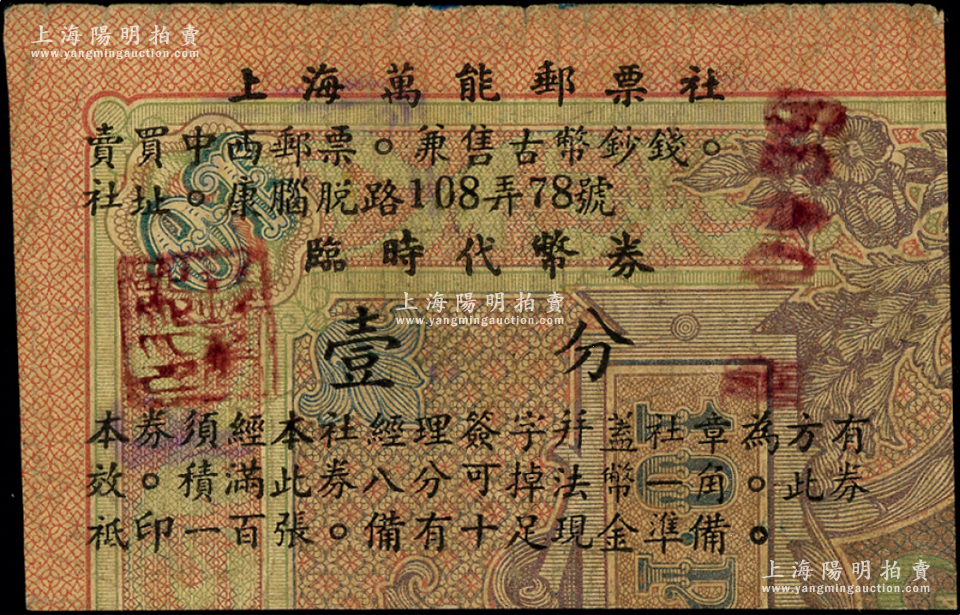 上海陽明拍賣
www.yangmingauction.com
上海萬能郵票社
賣買中西郵票。兼售古幣鈔錢。
社址。康腦脫路108弄78號
臨時代幣券
上海陽明拍賣
www.yangmingauction.com
壹分
本券須經本社經理簽字幷蓋社章為方有
效。積滿此券八分可掉法幣一角。此券
祇印一百張。備有十足現金準備。
上海陽明拍賣
www.yangmingauction.com